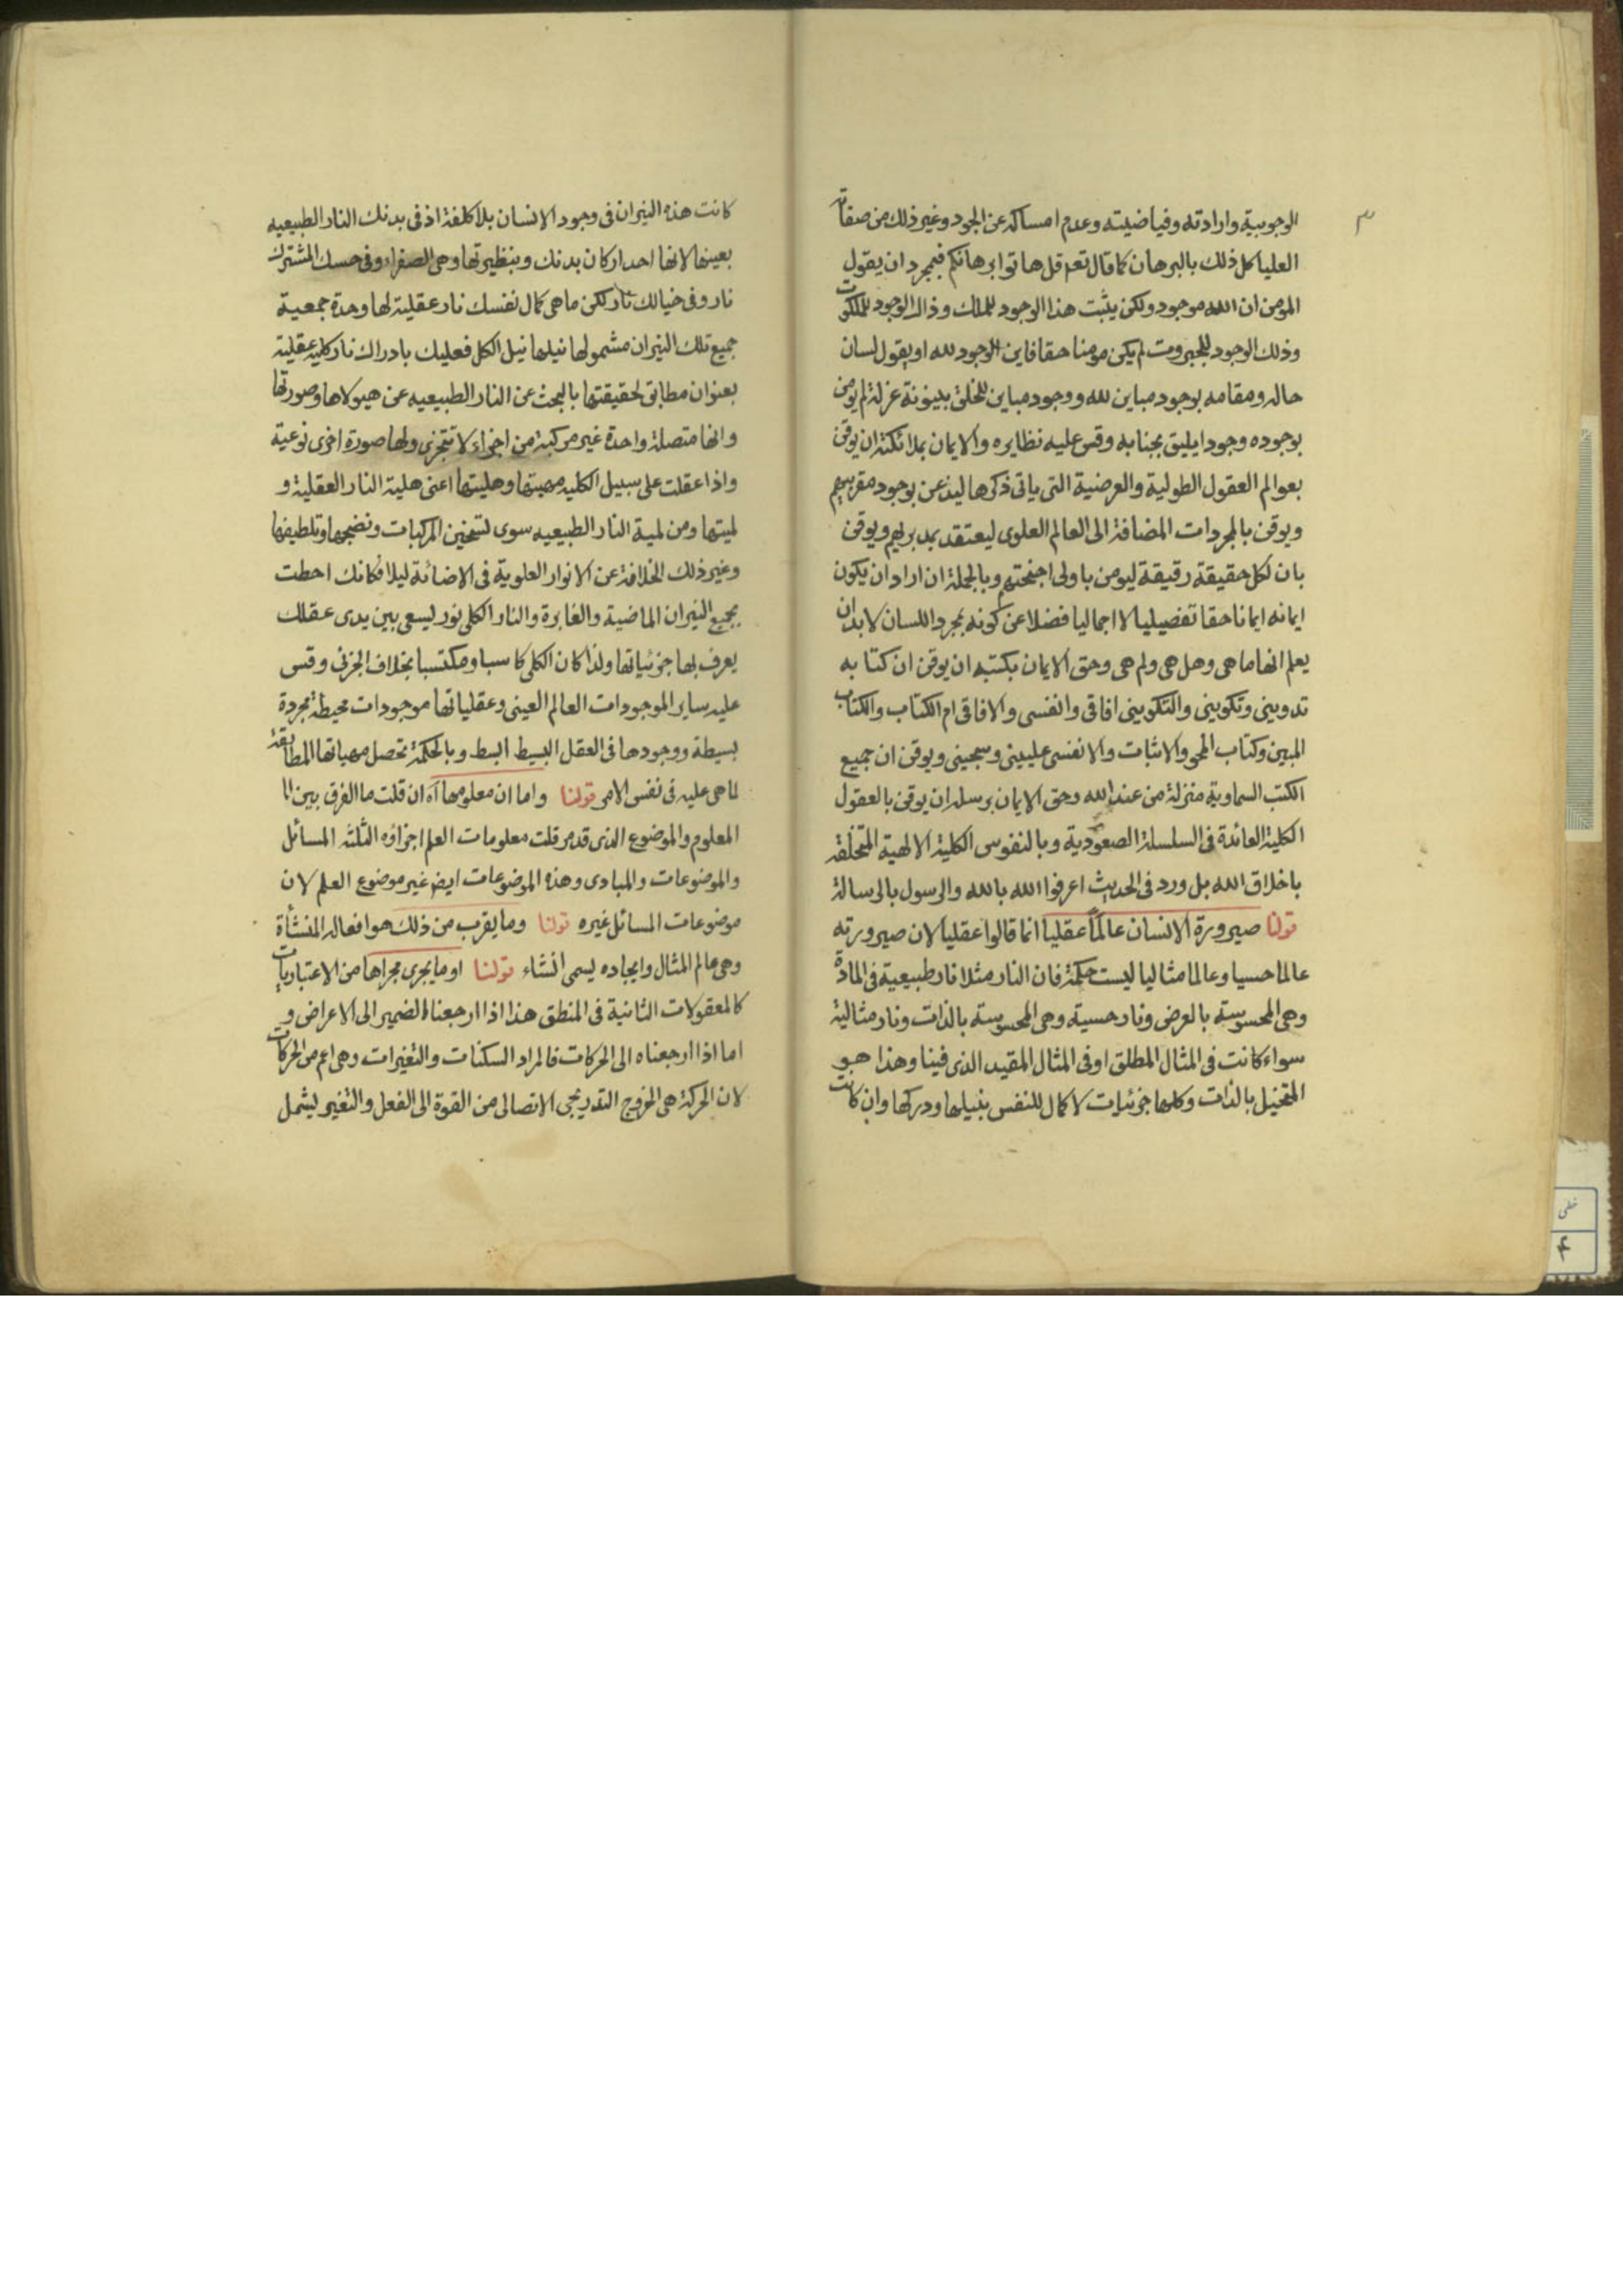 ٣
الوجوبية وارادته وفياضيته وعدم امساكه عن الجود وغير ذلك من صفاته
العليا كل ذلك بالبرهان كما قال تعم قل هاتوا برهانكم فبمجرد ان يقول
المومن ان الله موجود ولكن يثبت هذا الوجود للملك وذاك الوجود للملكوت
وذلك الوجود للجبروت لم يكن مومنا حقا فاين الوجود لله او يقول لسان
حاله ومقامه بوجود مباين لله ووجود مباين للخلق بينونة عزلة لم يومن
بوجوده وجودا يليق بجنابه وقس عليه نظايره والايمان بملائكته ان يوقن
بعوالم العقول الطولية والعرضية التي ياتي ذكرها ليذعن بوجود مقربيهم
ويوقن بالمجردات المضافة الى العالم العلوي ليعتقد بمدبريهم ويوقن
بان لكل حقيقة رقيقة ليومن باولى اجنحتهم وبالجملة ان اراد ان يكون
ايمانه ايمانا حقا تفصيليا لا اجماليا فضلا عن كونه بمجرد اللسان لابد ان
يعلم انها ما هي وهل هي ولم هي وحق الايمان بكتبه ان يوقن ان كتابه
تدويني وتكويني والتكويني افاقي وانفسي والافاقي ام الكتاب والكتاب
المبين وكتاب المحو والاثبات والانفسي علييني وسجيني ويوقن ان جميع
الكتب السماوية منزلة من عند الله وحق الايمان برسله ان يوقن بالعقول
الكلية العائدة في السلسلة الصعودية وبالنفوس الكلية الالهية المتخلقة
باخلاق الله بل ورد في الحديث اعرفوا الله بالله والرسول بالرسالة
قولنا صيرورة الانسان عالما عقليا انما قالوا عقليا لان صيرورته
عالما حسيا وعالما مثاليا ليست حكمة فان النار مثلا نار طبيعية في المادة
وهي المحسوسة بالعرض ونار حسية وهي المحسوسة بالذات ونار مثالية
سواء كانت في المثال المطلق او في المثال المقيد الذي فينا وهذا هو
المتخيل بالذات وكلها جزئيات لا كمال للنفس بنيلها ودركها وان كانت
كانت هذه النيران في وجود الانسان بلا كلفة اذ في بدنك النار الطبيعيه
بعينها لانها احد اركان بدنك وبنظيرتها وهي الصفراء وفي حسك المشترك
نار وفي خيالك نار لكن ما هي كمال نفسك نار عقلية لها وحدة جمعية
جميع تلك النيران مشمولها نيلها نيل الكل فعليك بادراك نار كلية عقلية
بعنوان مطابق لحقيقتها بالبحث عن النار الطبيعيه عن هيولاها وصورتها
وانها متصلة واحدة غير مركبة من اجزاء لا تتجزى ولها صورة اخرى نوعية
واذا عقلت على سبيل الكليه مهيتها وهليتها اعني هلية النار العقلية و
لميتها ومن لمية النار الطبيعيه سوى تسخين المركبات ونضجها وتلطيفها
وغير ذلك الخلافة عن الانوار العلوية في الاضائة ليلا فكانك احطت
بجميع النيران الماضية والغابرة والنار الكلي نور يسعى بين يدى عقلك
يعرف بها جزئياتها ولذا كان الكلي كاسبا ومكتسبا بخلاف الجزئى وقس
عليه ساير الموجودات العالم العيني وعقلياتها موجودات محيطة مجردة
بسيطة ووجودها في العقل البسيط ابسط وبالحكمة تحصل مهياتها المطابقة
لما هي عليه في نفس الامر قولنا واما ان معلومها آه ان قلت ما الفرق بين
المعلوم والموضوع الذي قد مر قلت معلومات العلم اجزاؤه الثلثه المسائل
والموضوعات والمبادى وهذه الموضوعات ايضا غير موضوع العلم لان
موضوعات المسائل غيره قولنا وما يقرب من ذلك هو افعاله المنشأة
وهي عالم المثال وايجاده يسمى انشاء قولنا او ما يجرى مجراها من الاعتباريات
كالمعقولات الثانية في المنطق هذا اذا ارجعنا الضمير الى الاعراض و
اما اذا ارجعناه الى الحركات فالمراد السكنات والتغيرات وهي اعم من الحركات
لان الحركة هي الخروج التدريجي الاتصالى من القوة الى الفعل والتغير يشمل
خطى
۴